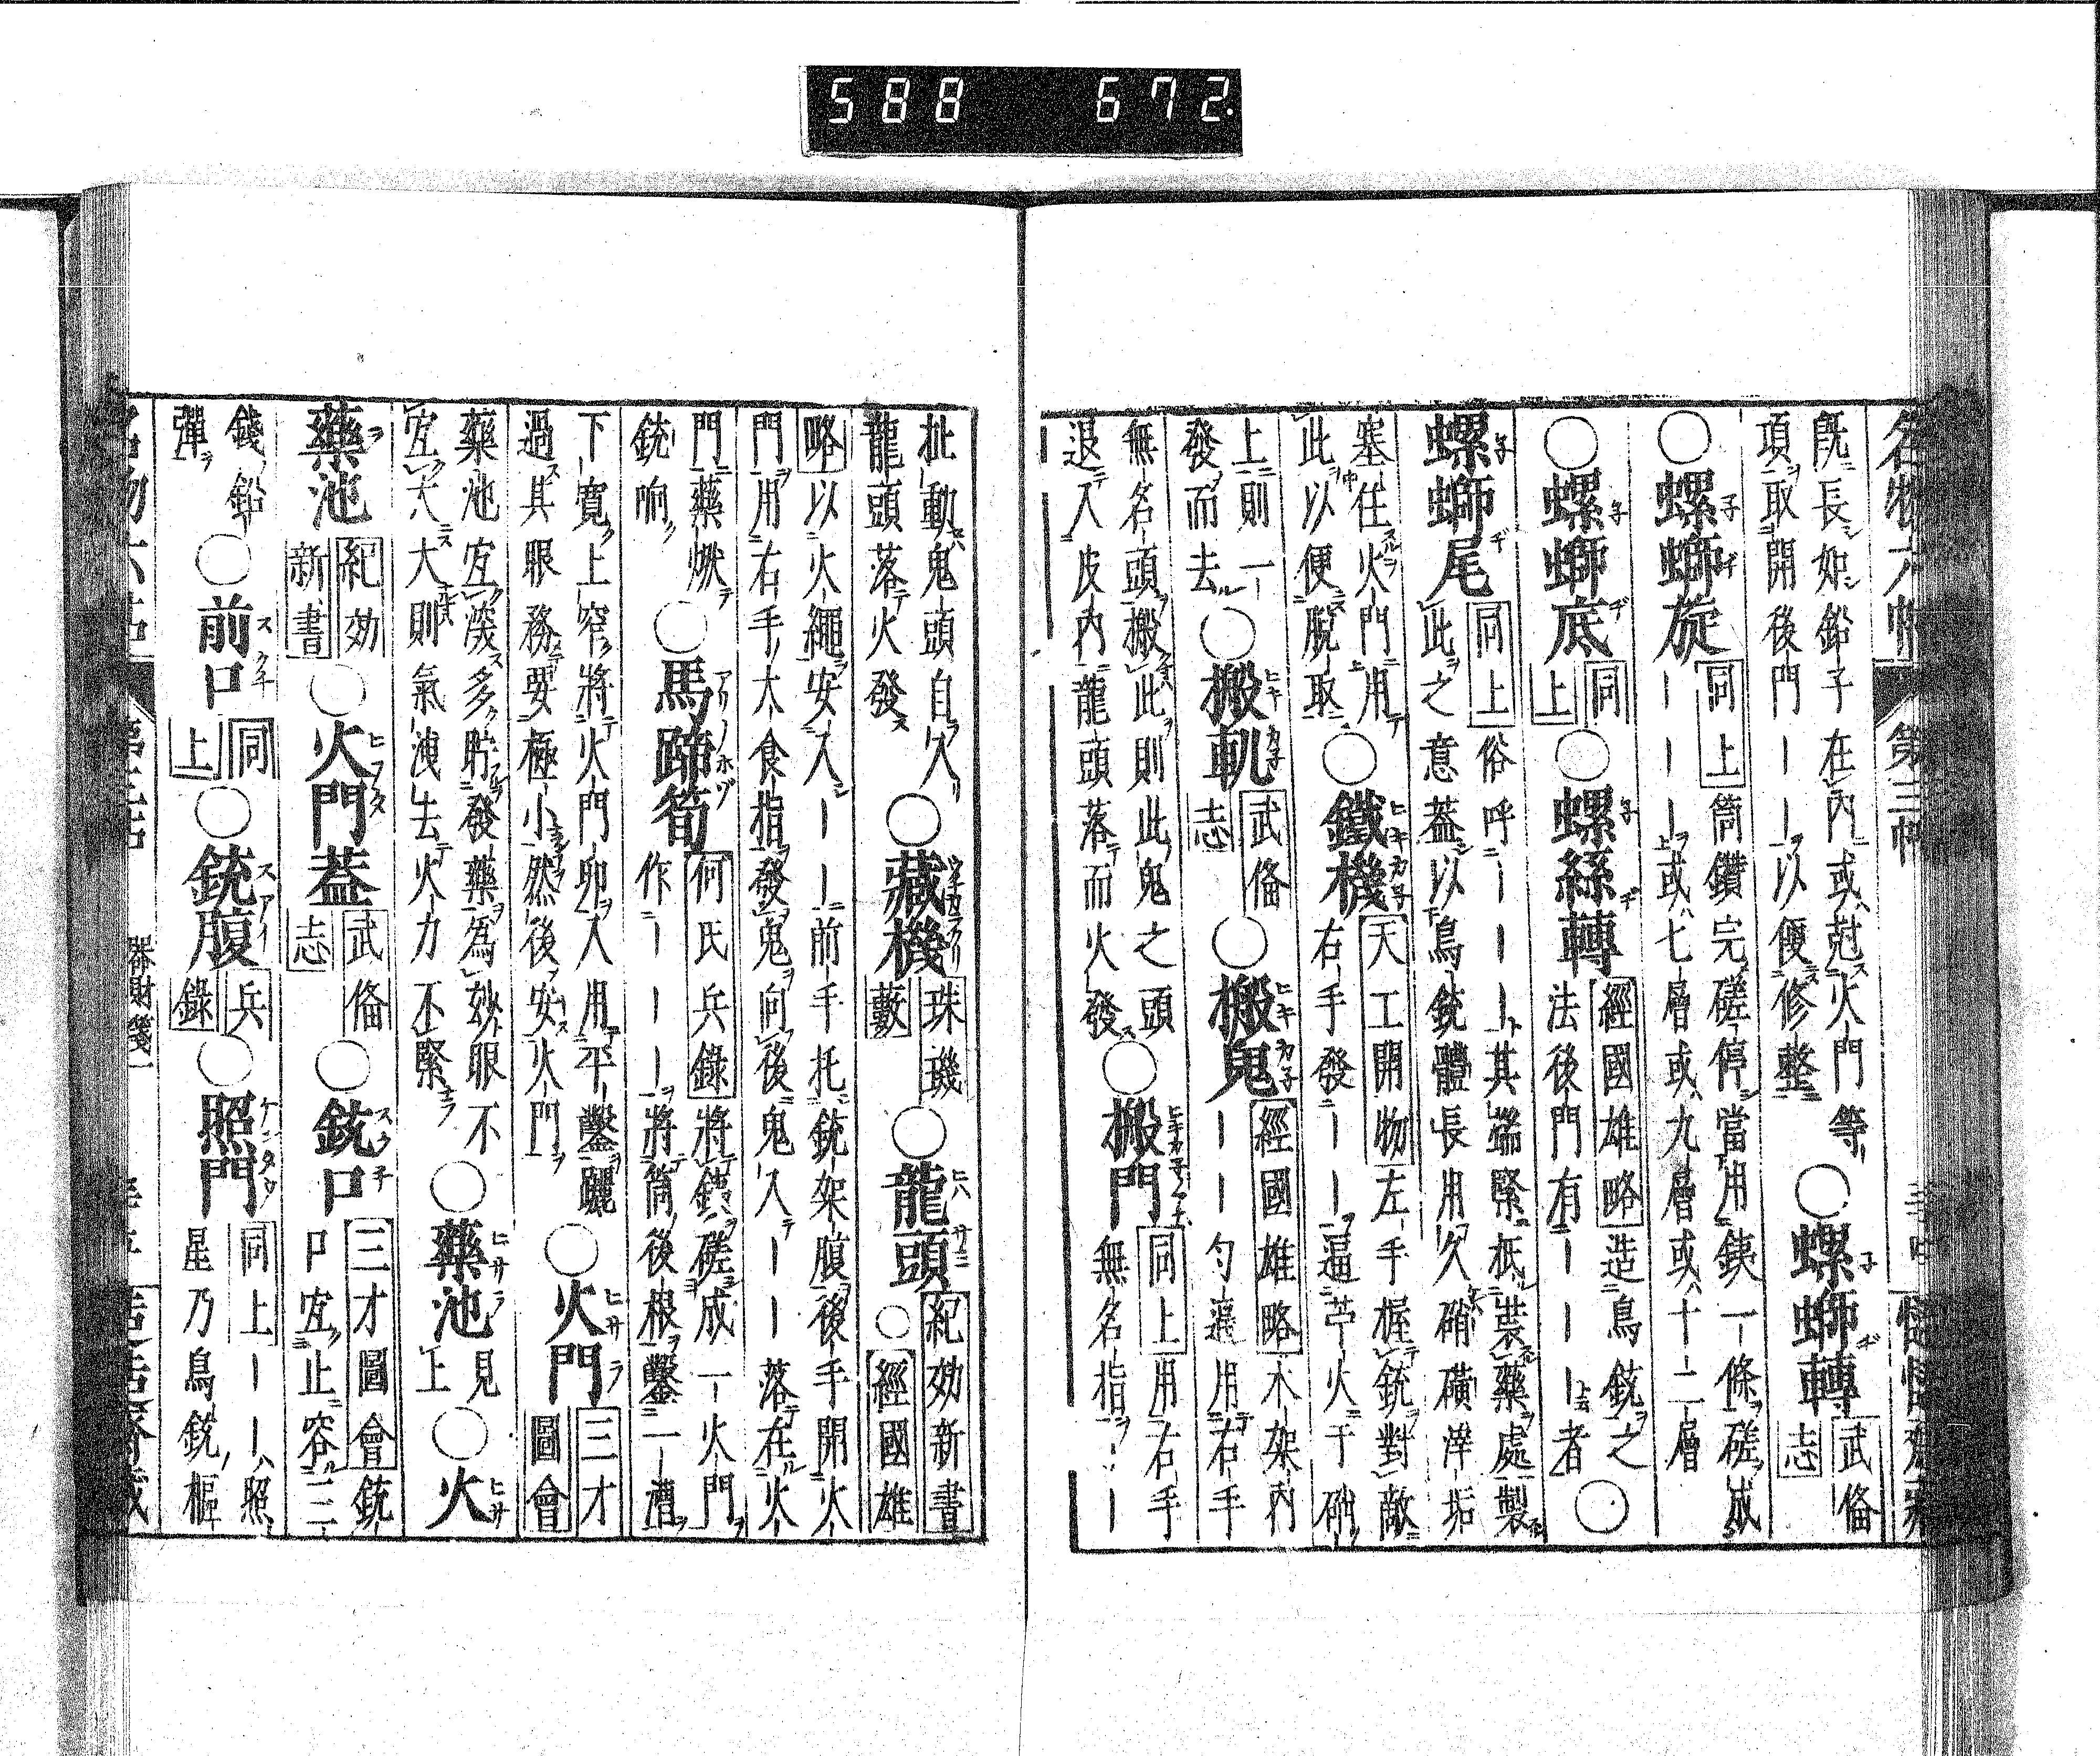 588 672
名物六帖 第三帖
既長如鉛子在內或尅火門等○螺螄轉 武偹志
項取開後門ーー以便修整
○螺螄旋 同上 筒鑽完磋停當用鉄一條磋成
ーーー或七層或九層或十二層
○螺螄底 同上 ○螺絲轉 經國雄略 造鳥銃之法後門有ーーー者○
螺螄尾 同上 俗呼ーーー其端緊抵裝藥處製
此之意蓋以鳥銃體長用久硝磺滓垢
塞住火門用
此以便脫取○鐵機 天工開物 左手握銃對敵右手發ーー逼苧火于硝
上則一
發而去○搬軌 武偹志 ○搬鬼 經國雄略 木架內ーー勾蕩用右手
無名頭搬此則此鬼之頭
退入皮內龍頭落而火發○搬門 同上 用右手無名指ーー
扯動鬼頭自入○藏機 珠璣藪 ○龍頭 紀効新書 ○ 經國雄
龍頭落火發
略 以火繩安入ーー前手托銃架腹後手開火
門用右手大食指發鬼向後鬼入ーー落在火
門藥燃
銃响○馬蹄筍 何氏兵錄 將鐵磋成一火門
作ーーー將筒後根鑿一漕
下寬上窄將火門卯入用平鑿躧
過其眼務要極小然後安火門○火門 三才圖會
藥池宜淺多貯發藥為妙眼不
宜大大則氣洩去火力不緊○藥池 見上 ○火
藥池 紀効新書 ○火門蓋 武偹志 ○銃口 三才圖會 銃口宜止容三
錢鉛
彈○前口 同上 ○銃腹 兵錄 ○照門 同上 ーー照星乃鳥銃樞
器財箋一